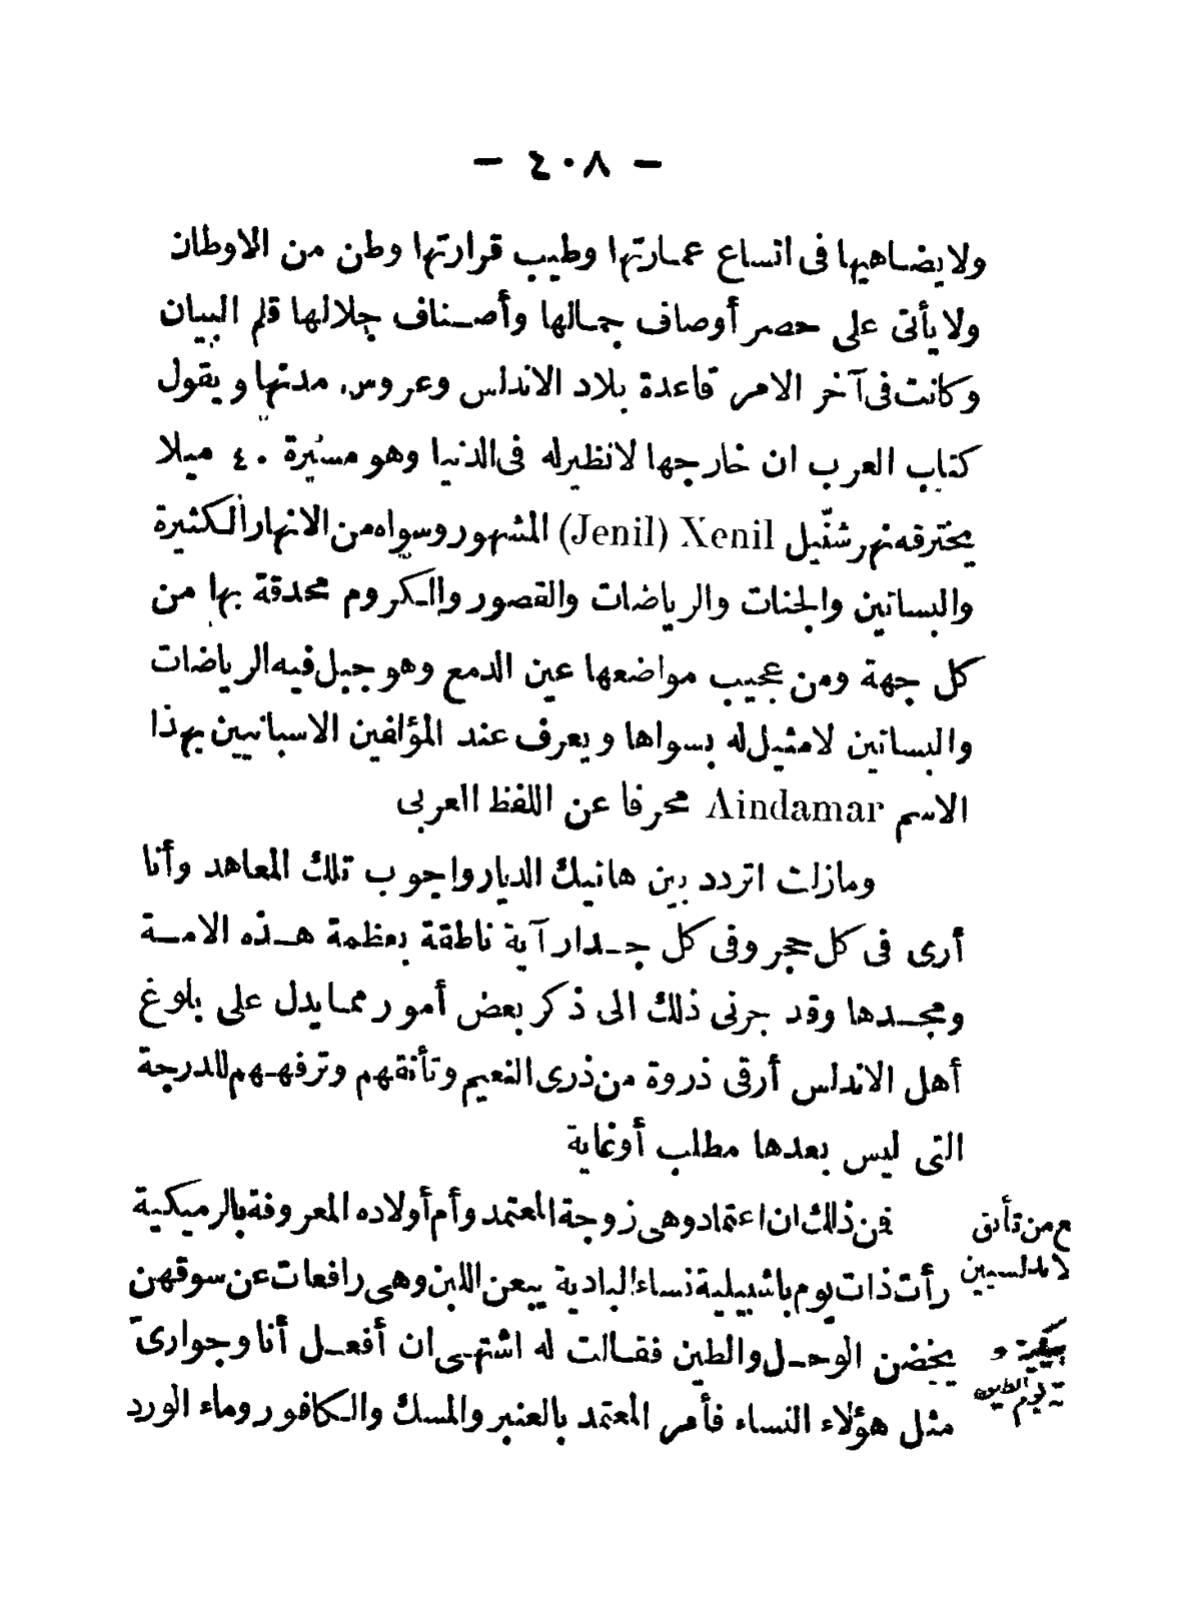 — ٤٠٨ —
ولا يضاهيها فى اتساع عمارتها وطيب قرارتها وطن من الاوطان
ولا يأتى على حصر أوصاف جمالها وأصناف جلالها قلم البيان
وكانت فى آخر الامر قاعدة بلاد الاندلس وعروس مدنها ويقول
كتاب العرب ان خارجها لا نظير له فى الدنيا وهو مسيرة ٤٠ ميلا
يخترقه نهر شنّيل Xenil (Jenil) المشهور وسواه من الانهار الكثيرة
والبساتين والجنات والرياضات والقصور والكروم محدقة بها من
كل جهة ومن عجيب مواضعها عين الدمع وهو جبل فيه الرياضات
والبساتين لا مثيل له بسواها ويعرف عند المؤلفين الاسبانيين بهذا
الاسم Aindamar محرفا عن اللفظ العربى
ومازلت اتردد بين هاتيك الديار واجوب تلك المعاهد وأنا
أرى فى كل حجر وفى كل جدار آية ناطقة بعظمة هذه الامة
ومجدها وقد جرنى ذلك الى ذكر بعض أمور مما يدل على بلوغ
أهل الاندلس أرقى ذروة من ذرى النعيم وتأنقهم وترفههم للدرجة
التى ليس بعدها مطلب أو غاية
فمن ذلك ان اعتماد وهى زوجة المعتمد وأم أولاده المعروفة بالرميكية
رأت ذات يوم باشبيلية نساء البادية يبعن اللبن وهى رافعات عن سوقهن
يخضن الوحل والطين فقالت له اشتهى ان أفعل أنا وجوارىّ
مثل هؤلاء النساء فأمر المعتمد بالعنبر والمسك والكافور وماء الورد
ع من تأنق
لاندلسيين
يكية و
ية يوم الطين